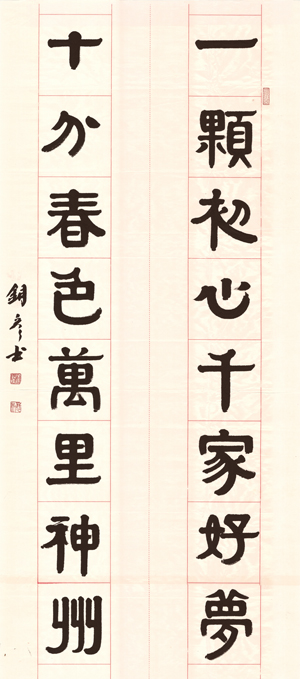 一顆初心千家好夢
十分春色萬里神州